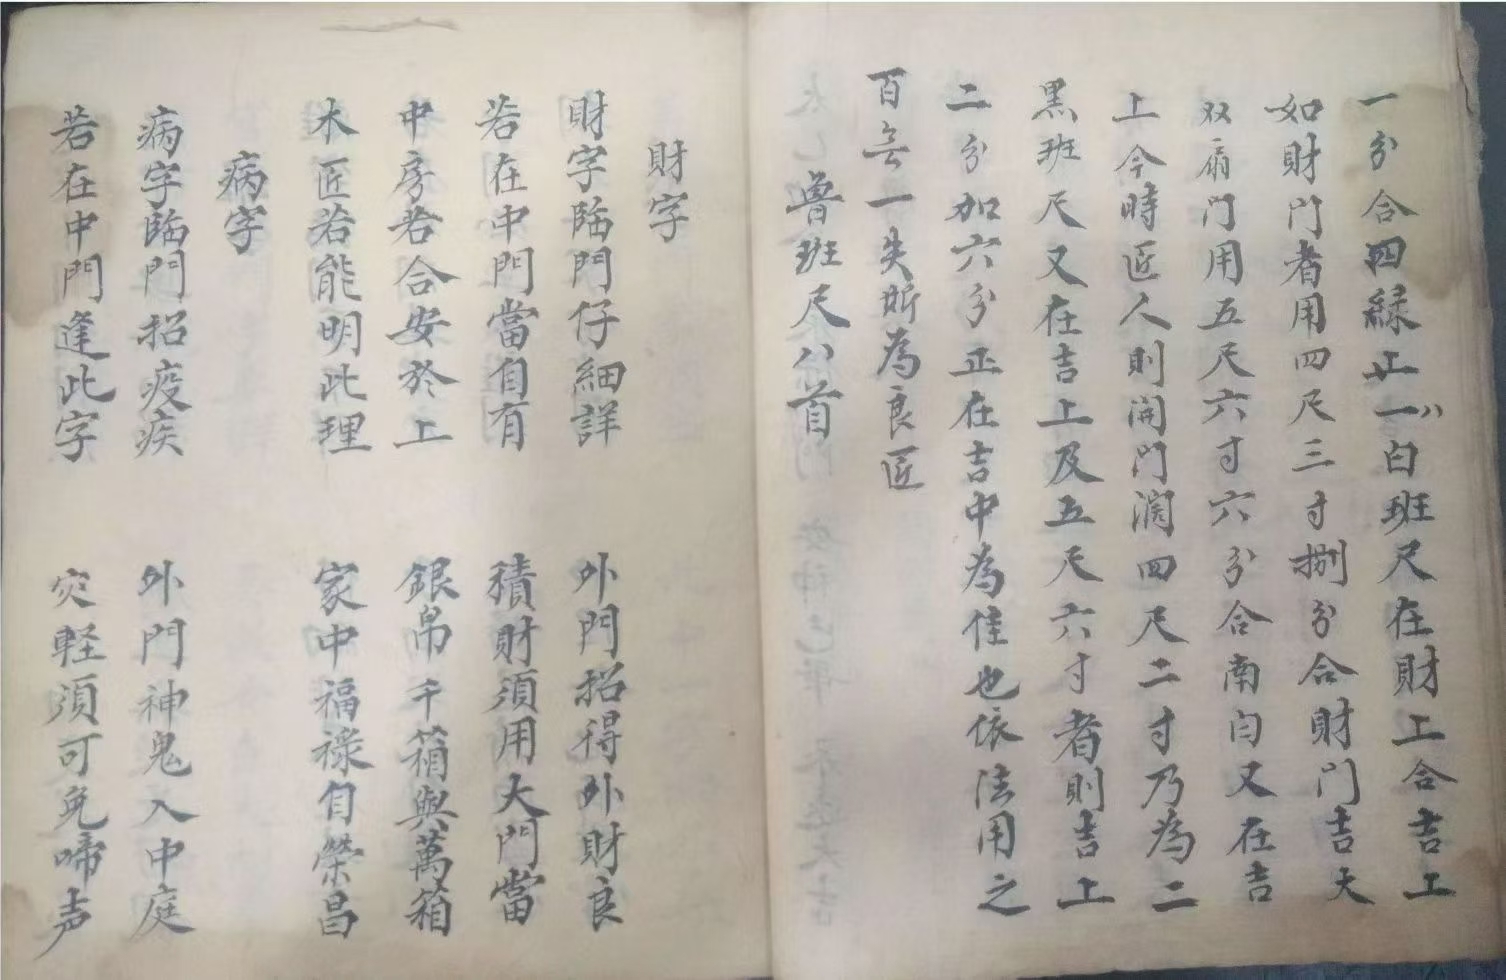 一分合四緑上一白班尺在財上合吉上
如財門者用四尺三寸捌分合財門吉大
双扇門用五尺六寸六分合南白又在吉
上今時匠人則開門濶四尺二寸乃為二
黑班尺又在吉上及五尺六寸者則吉上
二分加六分正在吉中為佳也依法用之
百無一失斯為良匠
魯班尺八首
財字
財字臨門仔細詳 外門招得外財良
若在中門當自有 積財須用大門當
中房若合安於上 銀帛千箱與萬箱
木匠若能明此理 家中福祿自榮昌
病字
病字臨門招疫疾 外門神鬼入中庭
若在中門逢此字 灾軽須可免啼声